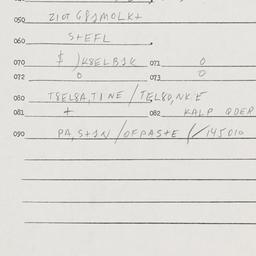 050 ZIOT G8JMOLK+
060 S+EFL
070 $ )K8ELBJK 071 0
072 0 073 0
080 T8EL8A,TINE/TEL80,NKE
081 + 082 KALP QDER
090 PA,S+JN/OFPAS+E (/145010